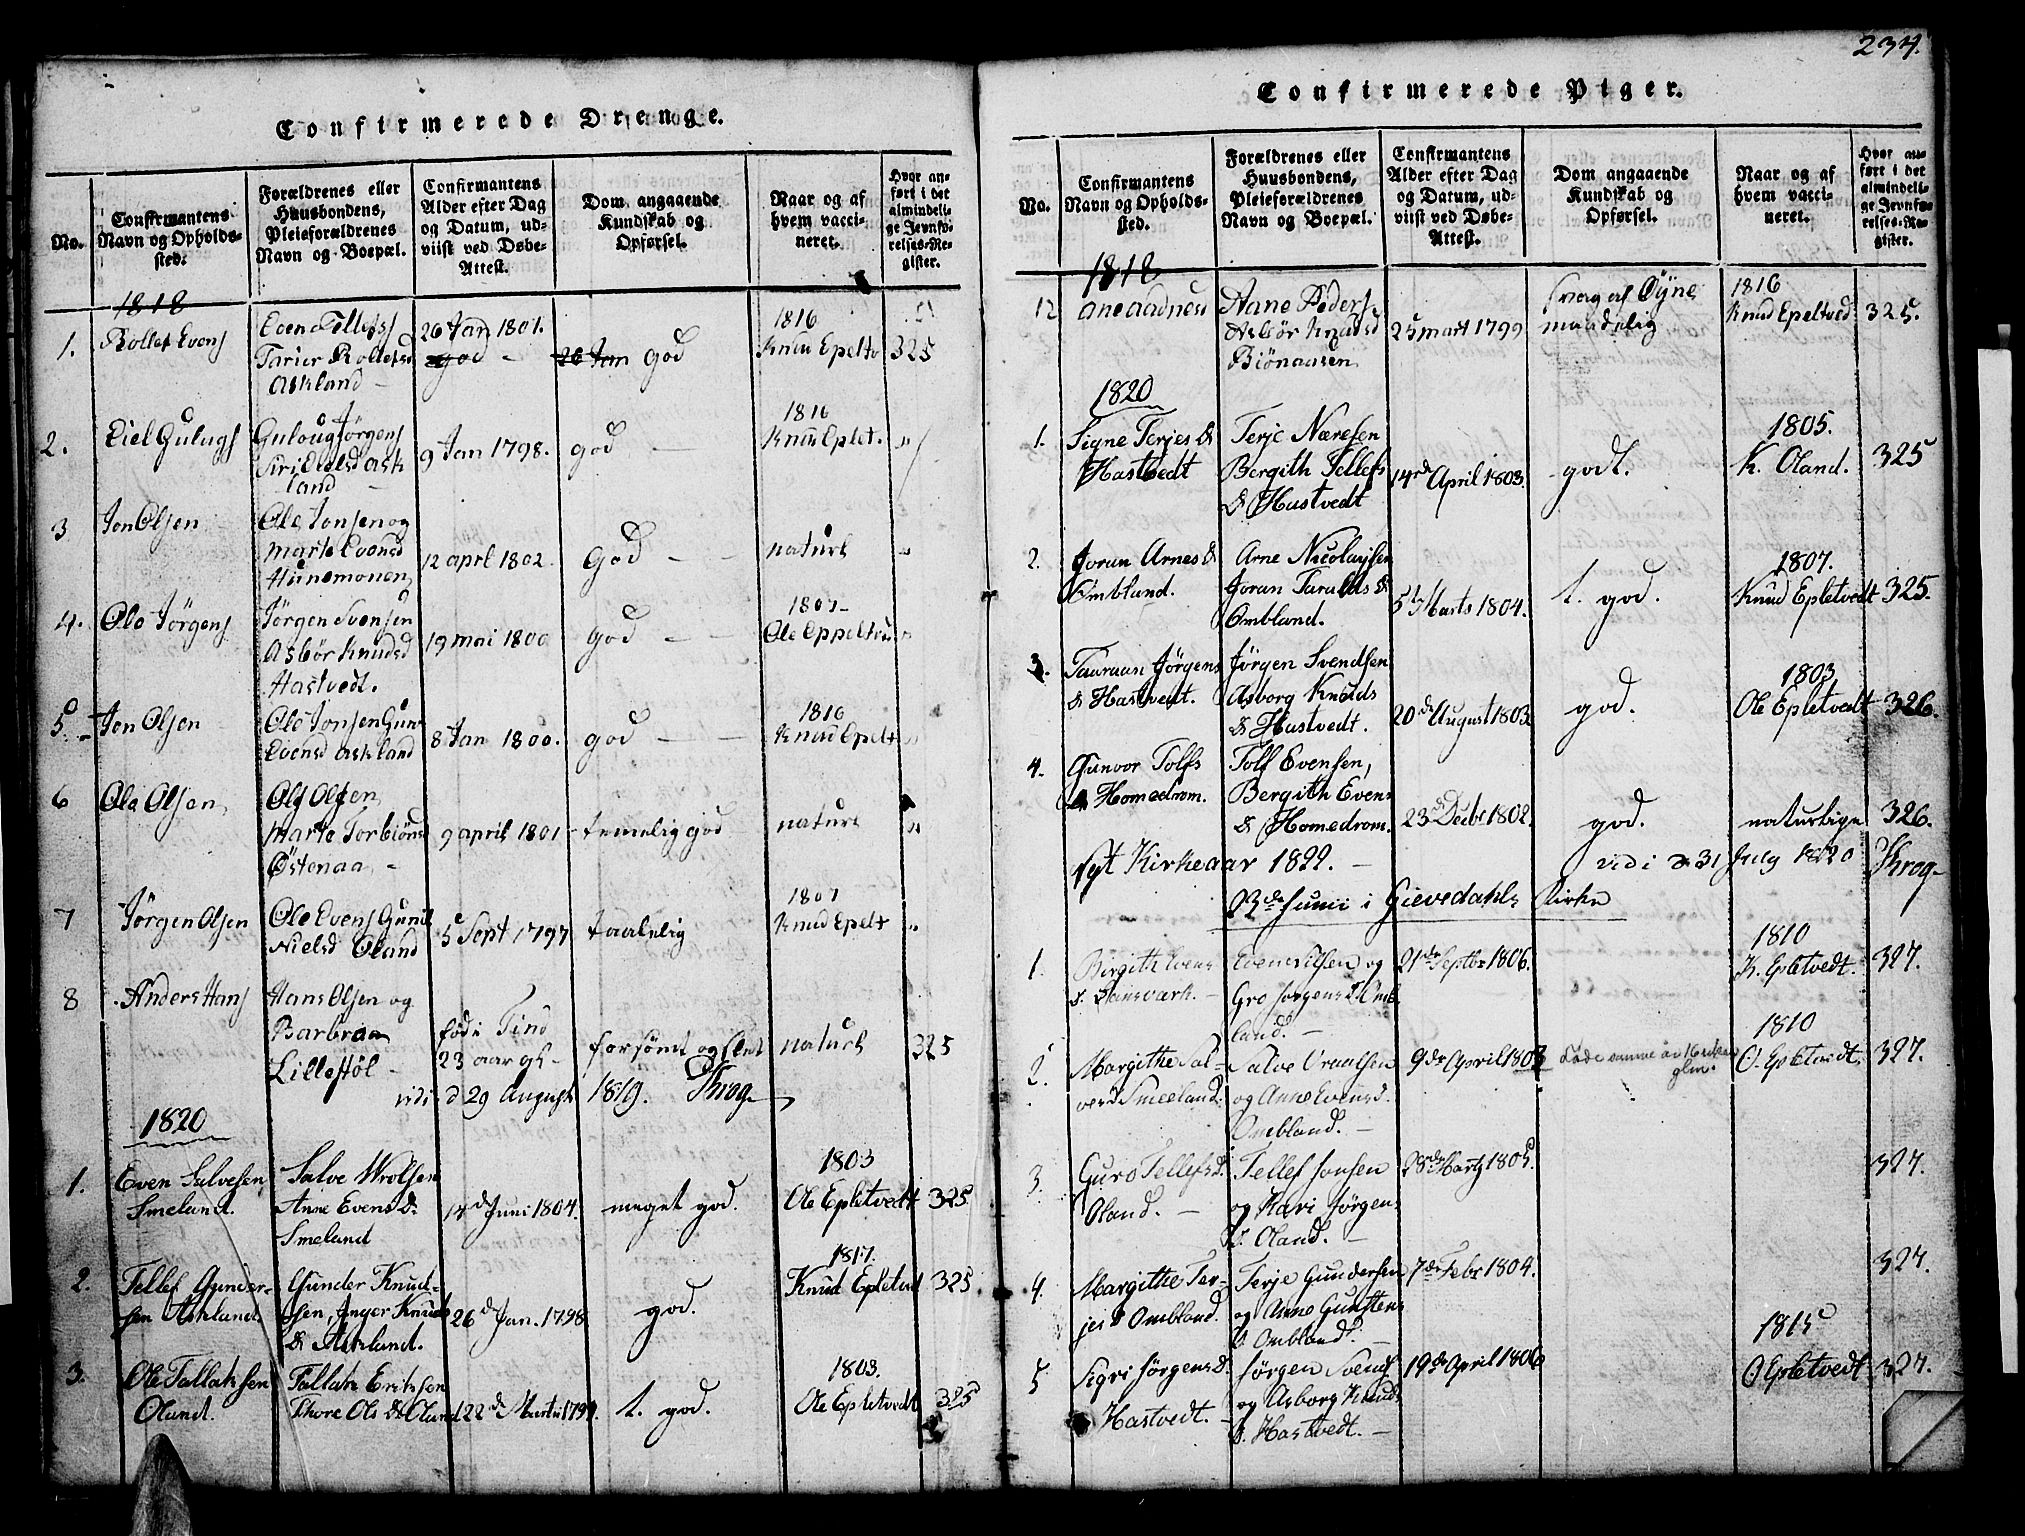 234.
Confirmerede Drenge.
No.
Confirmantens Navn og Opholdssted.
Forældrenes eller Huusbondens, Pleieforældrenes Navn og Boepæl.
Confirmantens Alder efter Dag og Datum, udviist ved Døbe-Attest.
Dom angaaende Kundskab og Opførsel.
Naar og af hvem vaccineret.
Hvor anført i det almindelige Jevnførelses-Register.
1818
1. Rollef Evens
Even Tellefs
Tarier Rollefsd
Askland
26 Jan 1801.
god
26 Jan god
1816
Knud Epeltv
325
2. Eiel Gulugs
Guloug Jørgens
Siri Eielsd Ask
land
9 Jan 1798.
god
1816
Knud Eplet.
"
3 Jon Olsen
Ole Jonsen og
Marte Evensd
Hünemonen
12 aprl 1802.
God
naturl
"
4. Ole Jörgens
Jörgen Svensen
Asbör Knudsd
Hastvedt.
19 mai 1800
God
1807
Ole Eppeltv
"
5 Jon Olsen
Ole Jonsen Gun
Evensd Askland
8 Jan 1800.
god
1816
Knud Epelt
"
6 Ole Olsen,
Ole Olsen
Marte Torbiöns
Østenaa
9 april 1801
temelig god
naturl
"
7 Jörgen Olsen
Ole Evens Gunil
Nielsd Oland
5 Sept 1797
taalelig
1807
Knud Epelt
"
8 Anders Hans
Hans Olsen og
Barbraa
Lillestöl
föd i Tind
23 aar gl
forsömt og slet
naturl
325
vidi d 29 August 1819. Krog
1820
1. Even Salvesen
Smeland.
Salve Wrolsen
Anne Evens D.
Smeland
14d Juni 1804.
meget god.
1803
Ole Epletvedt
325.
2. Tellef Gunder-
sen Askland.
Gunder Knud-
sen, Inger Knuds
D. Askland.
26d Jan. 1798
god.
1817.
Knud Epletvedt
325
3. Ole Tallaksen
Oland.
Tallak Eriksen
Thore Ols D. Oland
22d Martii 1799.
t. god.
1803.
Ole Epletvedt
325
Confirmerede Piger.
No.
Confirmantens Navn og Opholdssted.
Forældrenes eller Huusbondens, Pleieforældrenes Navn og Boepæl.
Confirmantens Alder efter Dag og Datum, udviist ved Døbe-Attest.
Dom angaaende Kundskab og Opførsel.
Naar og af hvem vaccineret.
Hvor anført i det almindelige Jevnførelses-Register.
1818
12 Ane Aadnesd
Aane Peders
Asbör Knudsd
Biönaasen
25 mart 1799
svag af Øyne
maadelig
1816
Knud Epeltved
325.
1820
1. Signe Terjes D
Hastvedt
Terje Næresen
Bergith Tellefs
D Hastvedt
14de April 1803.
godt.
1805.
K. Oland.
325
2. Joran Arnes D
Ombland.
Arne Nicolaysen
Joran Taralds D
Ombland.
5te Marts 1804.
t. god.
1807.
Knud Epletvedt
325.
3. Tauraan Jörgens
D Hastvedt.
Jörgen Svendsen
Asborg Knuds
D Hastvedt.
20de August 1803.
god.
1803
Ole Epletvedt
326.
4. Gunvor Tolfs
D Homedrom.
Tolf Evensen,
Bergith Evens
D Homedrom.
23d Decbr 1802.
god.
naturlige
326.
Nyt Kirkeaar 1822.
vidi d 31 July 1820 Krog
23de Junii i Gievedahls Kirke
1. Birgith Evens
d.
Even Nilsen og
Gro Jörgensd Omb
land.
21de Septbr 1806.
1810
K. Epletvedt.
327.
2. Margithe Sal-
vesd Smeeland.
Salve Vraalsen
og Anne Evensd.
Ombland.
9de April 1807
1810
O. Epletvedt.
327.
3. Guro Tellefsd.
Oland.
Tellef Jonsen
og Kari Jörgens
d. Oland.
28de Martz 1805.
327.
4. Margithe Ter-
jesd Ombland.
Terje Gundersen
og Anne Gunstens
d. Ombland.
7de Febr 1804.
327.
5 Sigri Jörgensd.
Hastvedt.
Jörgen Svends
og Asborg Knuds
d. Hastvedt.
19de April 1806
1815
O Epletvedt
327.